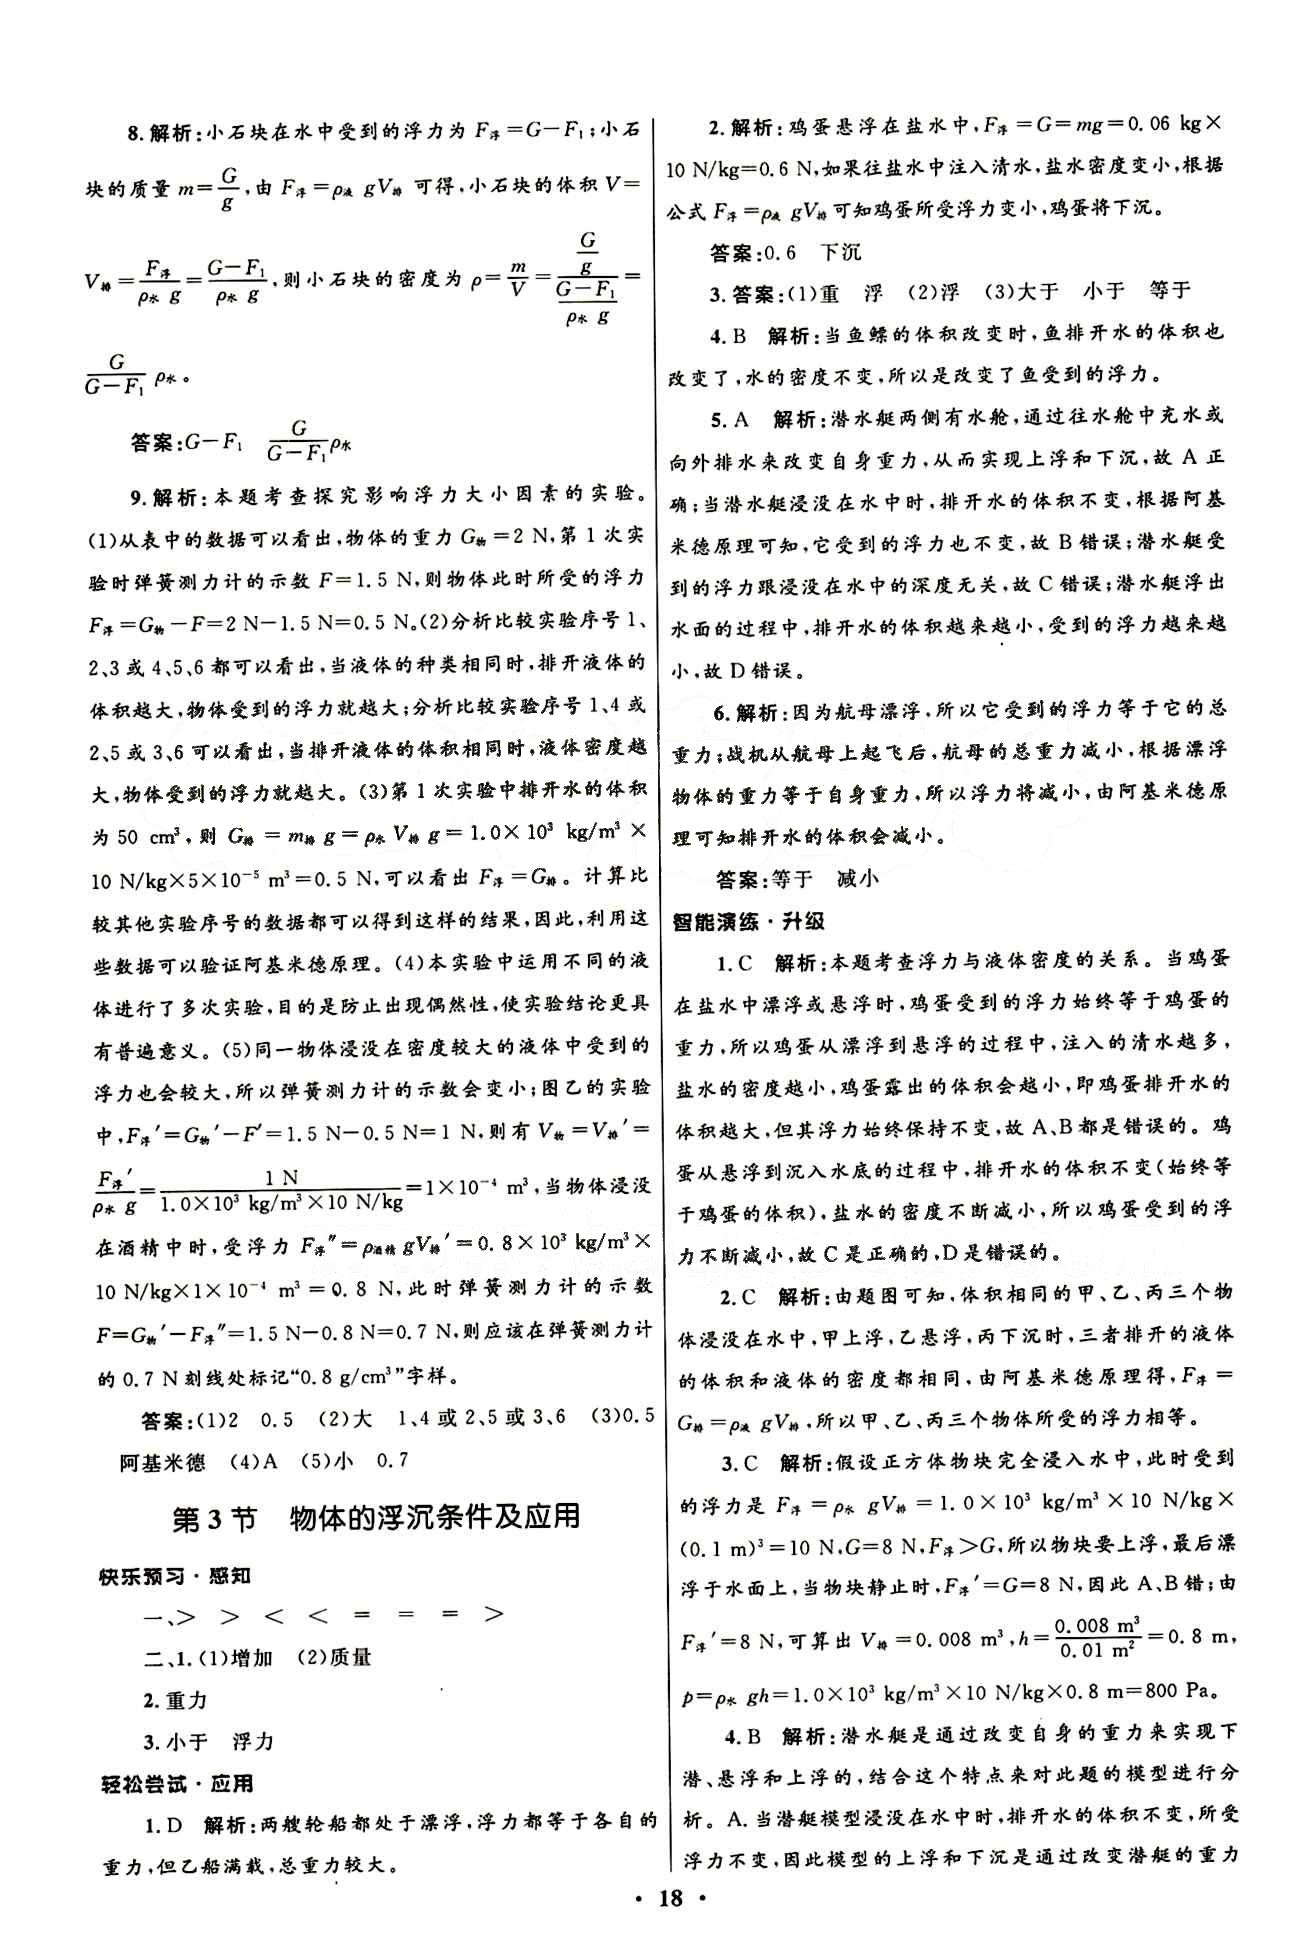 8.解析:小石块在水中受到的浮力为 F浮=G-F₁;小石
块的质量 m=G/g,由 F浮=ρ液 gV排 可得,小石块的体积 V=
V排=F浮/(ρ水 g)=(G-F₁)/(ρ水 g),则小石块的密度为 ρ=m/V=(G/g)/((G-F₁)/(ρ水 g))=
G/(G-F₁) ρ水。
答案:G-F₁ G/(G-F₁)ρ水
9.解析:本题考查探究影响浮力大小因素的实验。
(1)从表中的数据可以看出,物体的重力 G物=2 N,第 1 次实
验时弹簧测力计的示数 F=1.5 N,则物体此时所受的浮力
F浮=G物-F=2 N-1.5 N=0.5 N。(2)分析比较实验序号 1、
2、3 或 4、5、6 都可以看出,当液体的种类相同时,排开液体的
体积越大,物体受到的浮力就越大;分析比较实验序号 1、4 或
2、5 或 3、6 可以看出,当排开液体的体积相同时,液体密度越
大,物体受到的浮力就越大。(3)第 1 次实验中排开水的体积
为 50 cm³,则 G排=m排 g=ρ水 V排 g=1.0×10³ kg/m³×
10 N/kg×5×10⁻⁵ m³=0.5 N,可以看出 F浮=G排。计算比
较其他实验序号的数据都可以得到这样的结果,因此,利用这
些数据可以验证阿基米德原理。(4)本实验中运用不同的液
体进行了多次实验,目的是防止出现偶然性,使实验结论更具
有普遍意义。(5)同一物体浸没在密度较大的液体中受到的
浮力也会较大,所以弹簧测力计的示数会变小;图乙的实验
中,F浮′=G物′-F′=1.5 N-0.5 N=1 N,则有 V物=V排′=
F浮′/(ρ水 g)=1 N/(1.0×10³ kg/m³×10 N/kg)=1×10⁻⁴ m³,当物体浸没
在酒精中时,受浮力 F浮″=ρ酒精 gV排′=0.8×10³ kg/m³×
10 N/kg×1×10⁻⁴ m³=0.8 N,此时弹簧测力计的示数
F=G物′-F浮″=1.5 N-0.8 N=0.7 N,则应该在弹簧测力计
的 0.7 N 刻线处标记“0.8 g/cm³”字样。
答案:(1)2 0.5 (2)大 1、4 或 2、5 或 3、6 (3)0.5
阿基米德 (4)A (5)小 0.7
第 3 节 物体的浮沉条件及应用
快乐预习·感知
一、> > < < = = = >
二、1.(1)增加 (2)质量
2.重力
3.小于 浮力
轻松尝试·应用
1.D 解析:两艘轮船都处于漂浮,浮力都等于各自的
重力,但乙船满载,总重力较大。
2.解析:鸡蛋悬浮在盐水中,F浮=G=mg=0.06 kg×
10 N/kg=0.6 N,如果往盐水中注入清水,盐水密度变小,根据
公式 F浮=ρ液 gV排 可知鸡蛋所受浮力变小,鸡蛋将下沉。
答案:0.6 下沉
3.答案:(1)重 浮 (2)浮 (3)大于 小于 等于
4.B 解析:当鱼鳔的体积改变时,鱼排开水的体积也
改变了,水的密度不变,所以是改变了鱼受到的浮力。
5.A 解析:潜水艇两侧有水舱,通过往水舱中充水或
向外排水来改变自身重力,从而实现上浮和下沉,故 A 正
确;当潜水艇浸没在水中时,排开水的体积不变,根据阿基
米德原理可知,它受到的浮力也不变,故 B 错误;潜水艇受
到的浮力跟浸没在水中的深度无关,故 C 错误;潜水艇浮出
水面的过程中,排开水的体积越来越小,受到的浮力越来越
小,故 D 错误。
6.解析:因为航母漂浮,所以它受到的浮力等于它的总
重力;战机从航母上起飞后,航母的总重力减小,根据漂浮
物体的重力等于自身重力,所以浮力将减小,由阿基米德原
理可知排开水的体积会减小。
答案:等于 减小
智能演练·升级
1.C 解析:本题考查浮力与液体密度的关系。当鸡蛋
在盐水中漂浮或悬浮时,鸡蛋受到的浮力始终等于鸡蛋的
重力,所以鸡蛋从漂浮到悬浮的过程中,注入的清水越多,
盐水的密度越小,鸡蛋露出的体积会越小,即鸡蛋排开水的
体积越大,但其浮力始终保持不变,故 A、B 都是错误的。鸡
蛋从悬浮到沉入水底的过程中,排开水的体积不变(始终等
于鸡蛋的体积),盐水的密度不断减小,所以鸡蛋受到的浮
力不断减小,故 C 是正确的,D 是错误的。
2.C 解析:由题图可知,体积相同的甲、乙、丙三个物
体浸没在水中,甲上浮,乙悬浮,丙下沉时,三者排开的液体
的体积和液体的密度都相同,由阿基米德原理得,F浮=
G排=ρ液 gV排,所以甲、乙、丙三个物体所受的浮力相等。
3.C 解析:假设正方体物块完全浸入水中,此时受到
的浮力是 F浮=ρ水 gV排=1.0×10³ kg/m³×10 N/kg×
(0.1 m)³=10 N,G=8 N,F浮>G,所以物块要上浮,最后漂
浮于水面上,当物块静止时,F浮′=G=8 N,因此 A、B 错;由
F浮′=8 N,可算出 V排=0.008 m³,h=0.008 m³/0.01 m²=0.8 m,
p=ρ水 gh=1.0×10³ kg/m³×10 N/kg×0.8 m=800 Pa。
4.B 解析:潜水艇是通过改变自身的重力来实现下
潜、悬浮和上浮的,结合这个特点来对此题的模型进行分
析。A.当潜艇模型浸没在水中时,排开水的体积不变,所受
浮力不变,因此模型的上浮和下沉是通过改变潜艇的重力
· 18 ·